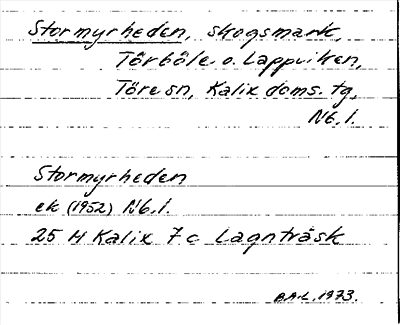 Stormyrheden, skogsmark,
Törböle o. Lappviken,
Töre sn, Kalix doms. tg,
Nb. l.
Stormyrheden
ek (1952) Nb. l.
25 M Kalix 7 c Lagnträsk
B.A-L. 1973.